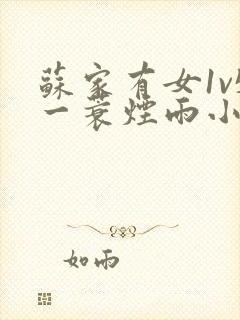 蘇家有女1v
一蓑煙雨小
如雨